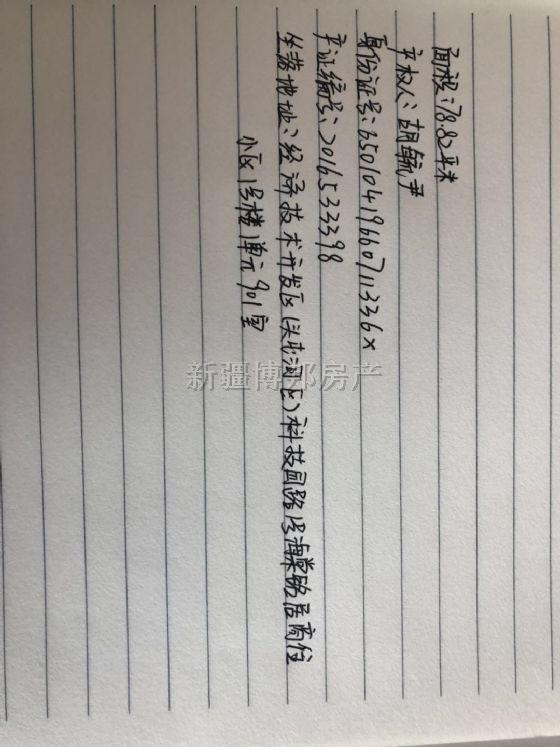 面积:78.82平米
产权人:胡毓尹
身份证号:65010419660711336x
产证编号:2016533398
坐落地址:经济技术开发区(头屯河区)科技园路1号海棠铭居商住
小区1号楼1单元901室
新疆博邦房产